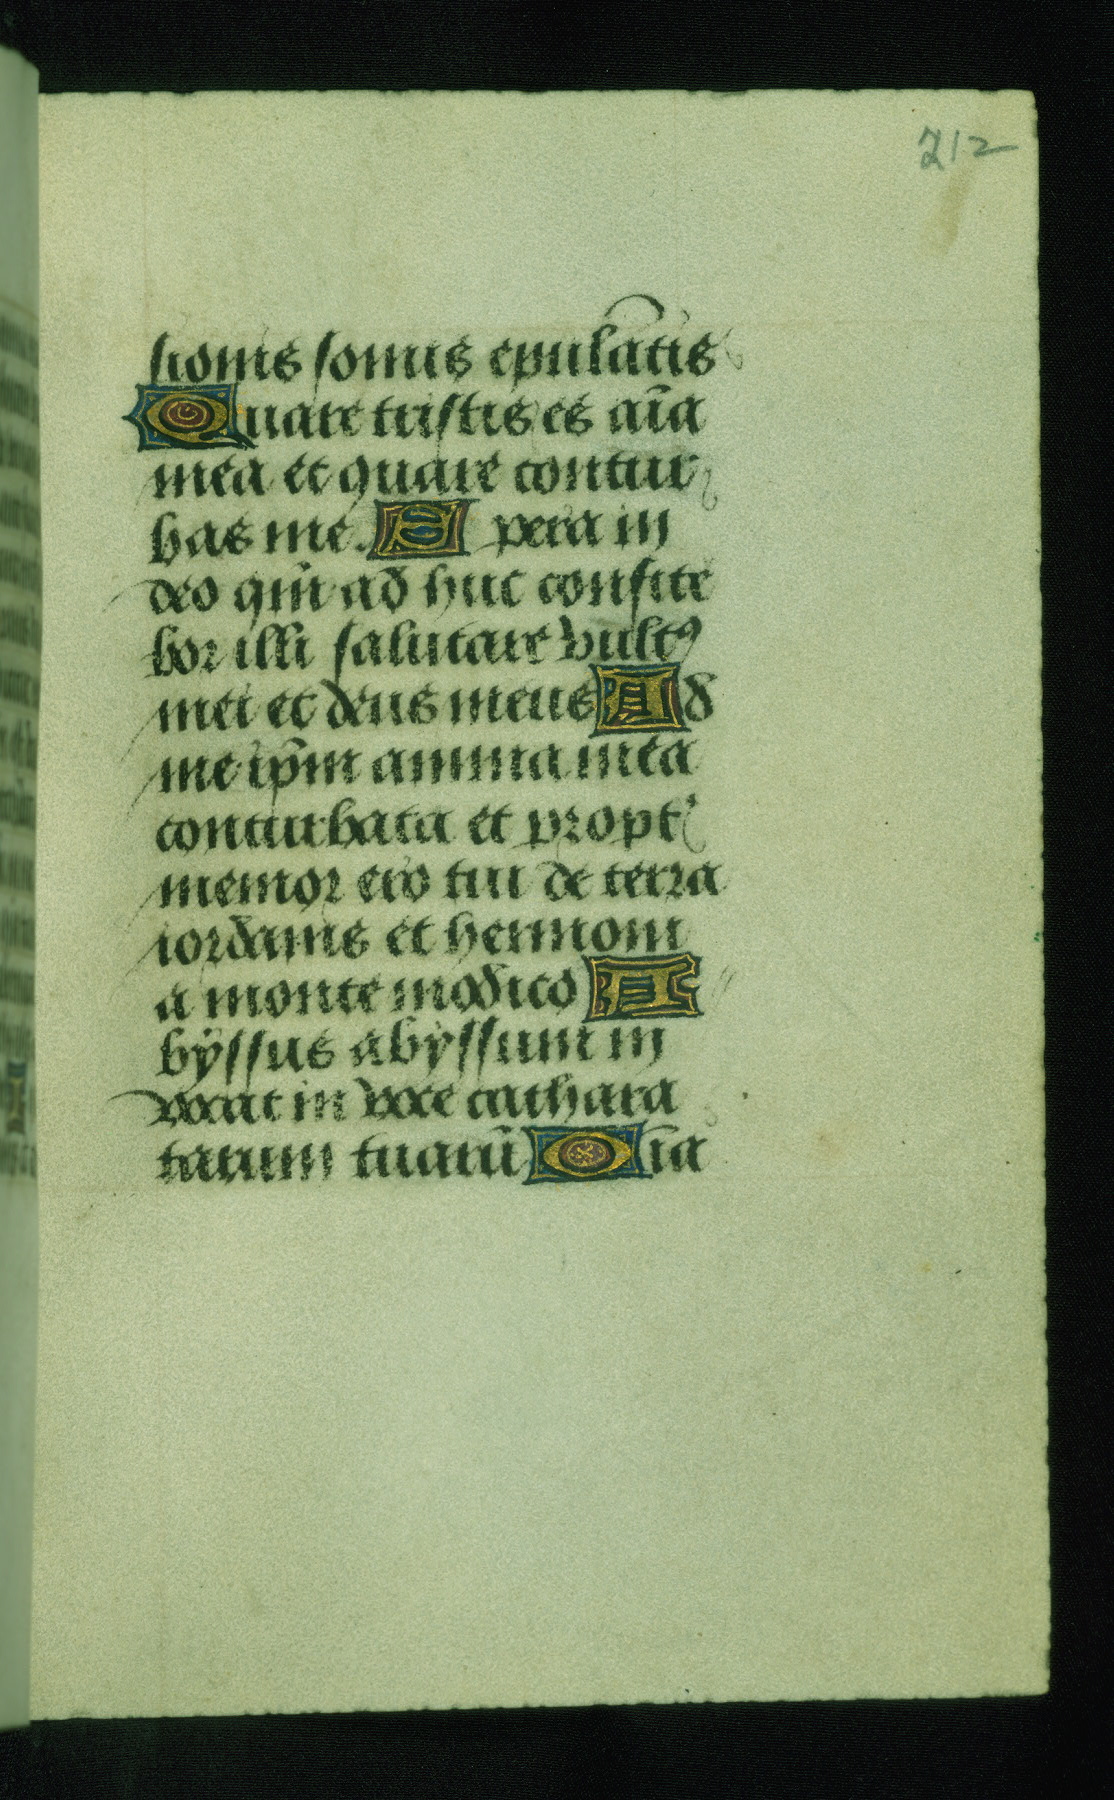 212
sionis sonus epulātis
Quare tristis es aīa
mea et quare contur
bas me. Spera in
deo qm̄ ad huc confite
bor illi salutare vultꝰ
mei et deus meus Ad
me ip̄m anima mea
conturbata et propt᷑
memor ero tui de terra
iordanis et hermoni
a monte modico A
byssus abyssum in
vocat in voce cathara
tarum tuarū Oīa